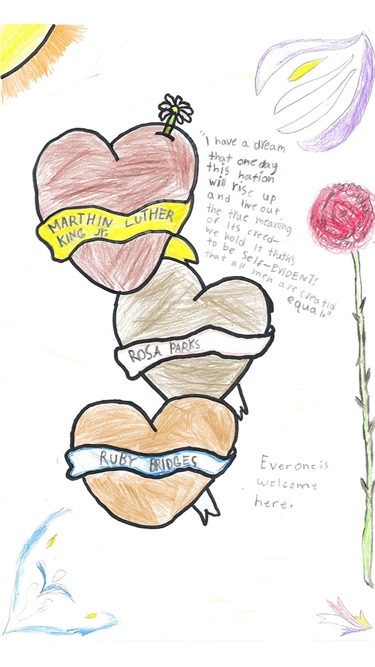 MARTHIN LUTHER
KING Jr.
"I have a dream
that one day
this nation
will rise up
and live out
the true meaning
of its creed—
we hold it truth's
to be self-EVIDENT:
that all men are creatid
equal."
ROSA PARKS
RUBY BRIDGES
Everone is
welcome
here.